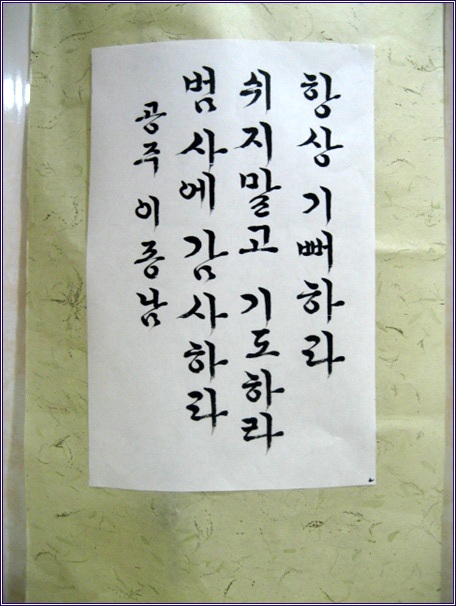 항상 기뻐하라
쉬지말고 기도하라
범사에 감사하라
공주 이종남